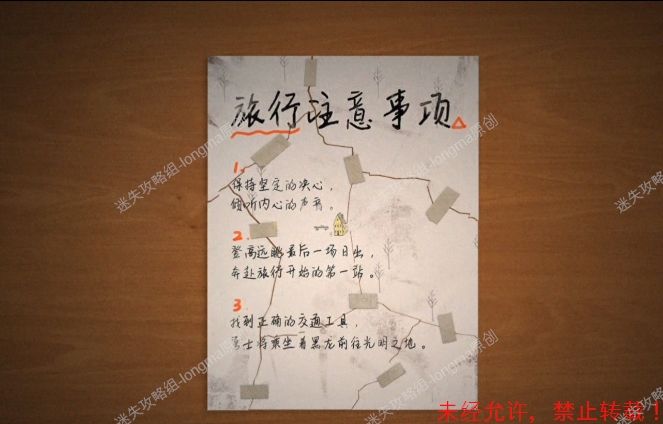 旅行注意事项
1.
保持坚定的决心，
倾听内心的声音。
2.
登高远眺最后一场日出，
奔赴旅行开始的第一站。
3
找到正确的交通工具，
勇士将乘坐着黑龙前往光明之地。
迷失攻略组-longmal原创
迷失攻略组-longmal原创
迷失攻略组-longmal原创
迷失攻略组-longmal原创
迷失攻略组-longmal原创
迷失攻略组-longmal原创
未经允许，禁止转载！